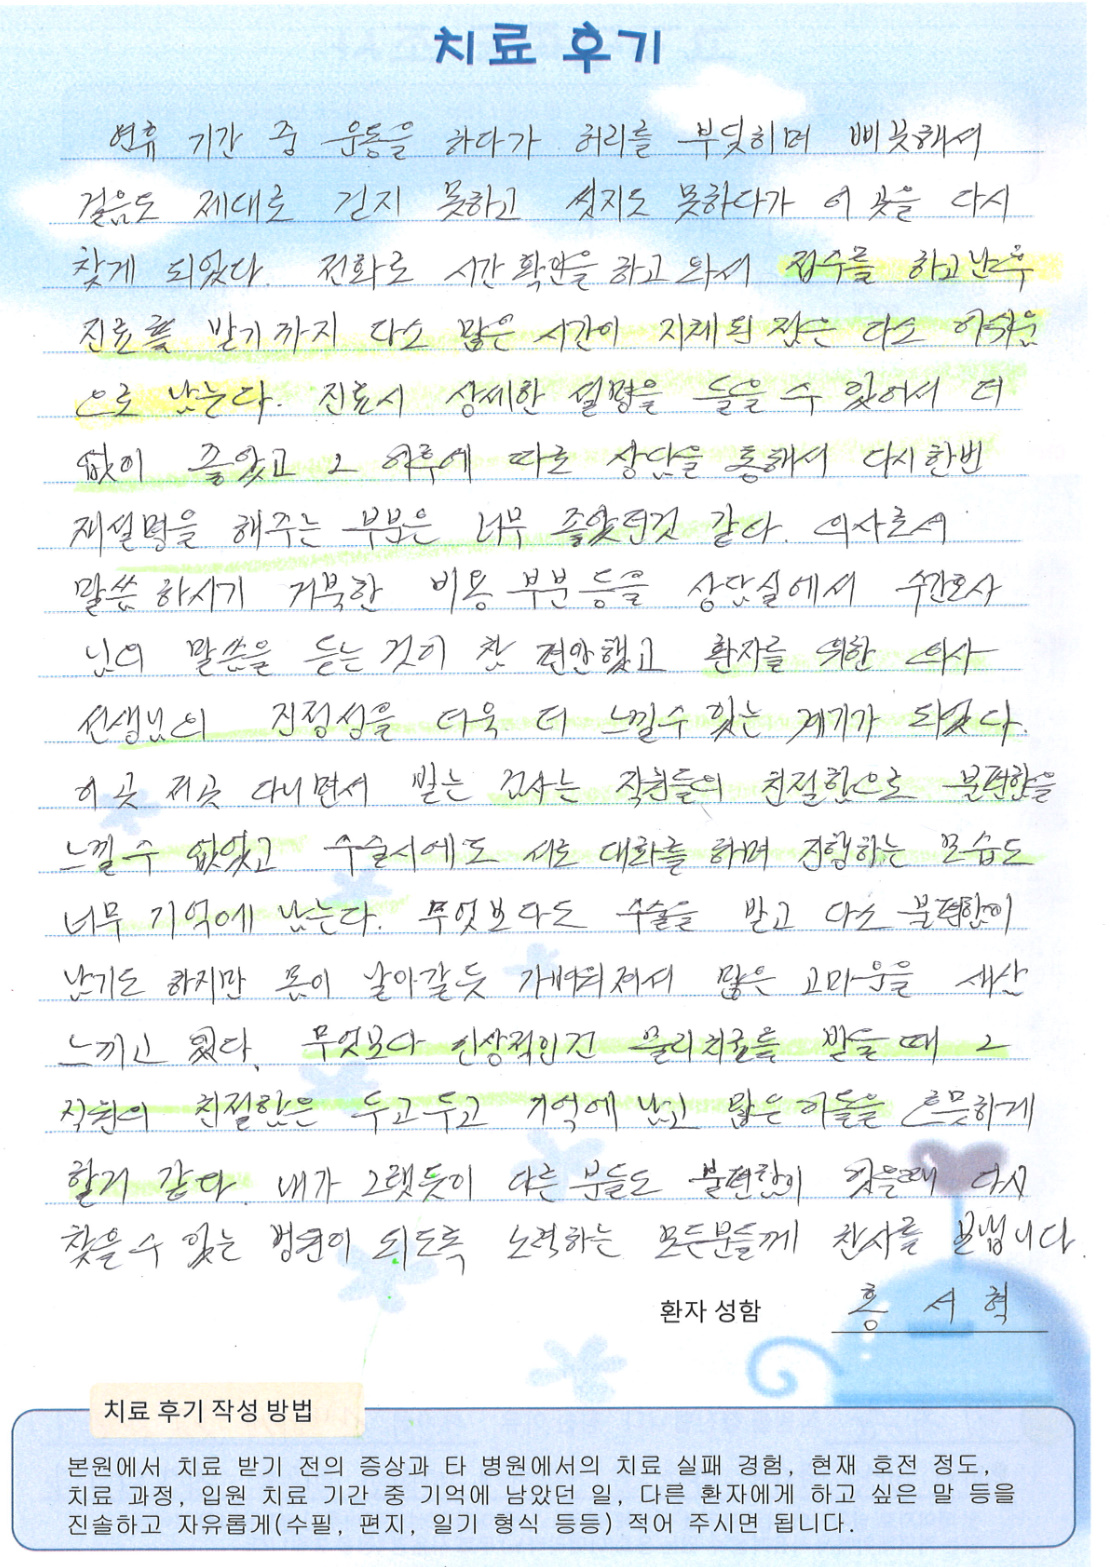 치료 후기
연휴 기간 중 운동을 하다가 허리를 부딪히며 삐끗해서
걸음도 제대로 걷지 못하고 씻지도 못하다가 이 곳을 다시
찾게 되었다. 전화로 시간확인을 하고 와서 접수를 하고난후
진료를 받기까지 다소 많은 시간이 지체된 점은 다소 아쉬움
으로 남는다. 진료시 상세한 설명을 들을 수 있어서 더
없이 좋았고 그 이후에 따로 상담을 통해서 다시한번
재설명을 해주는 부분은 너무 좋았던것 같다. 의사로서
말씀 하시기 거북한 비용 부분 등을 상담실에서 수간호사
님의 말씀을 듣는 것이 참 편안했고 환자를 위한 의사
선생님의 진정성을 더욱 더 느낄수 있는 계기가 되었다.
이 곳 저곳 다니면서 받는 검사는 직원들의 친절함으로 불편함을
느낄 수 없었고 수술시에도 서로 대화를 하며 진행하는 모습도
너무 기억에 남는다. 무엇보다도 수술을 받고 다소 불편함이
남기도 하지만 몸이 날아갈듯 가벼워져서 많은 고마움을 새삼
느끼고 있다. 무엇보다 인상적인건 물리치료를 받을 때 그
직원의 친절함은 두고두고 기억에 남고 많은 이들을 흐뭇하게
할거 같다. 내가 그랬듯이 다른 분들도 불편함이 있을때 다시
찾을 수 있는 병원이 되도록 노력하는 모든분들께 찬사를 보냅니다.
환자 성함 홍 서 혁
치료 후기 작성 방법
본원에서 치료 받기 전의 증상과 타 병원에서의 치료 실패 경험, 현재 호전 정도,
치료 과정, 입원 치료 기간 중 기억에 남았던 일, 다른 환자에게 하고 싶은 말 등을
진솔하고 자유롭게(수필, 편지, 일기 형식 등등) 적어 주시면 됩니다.